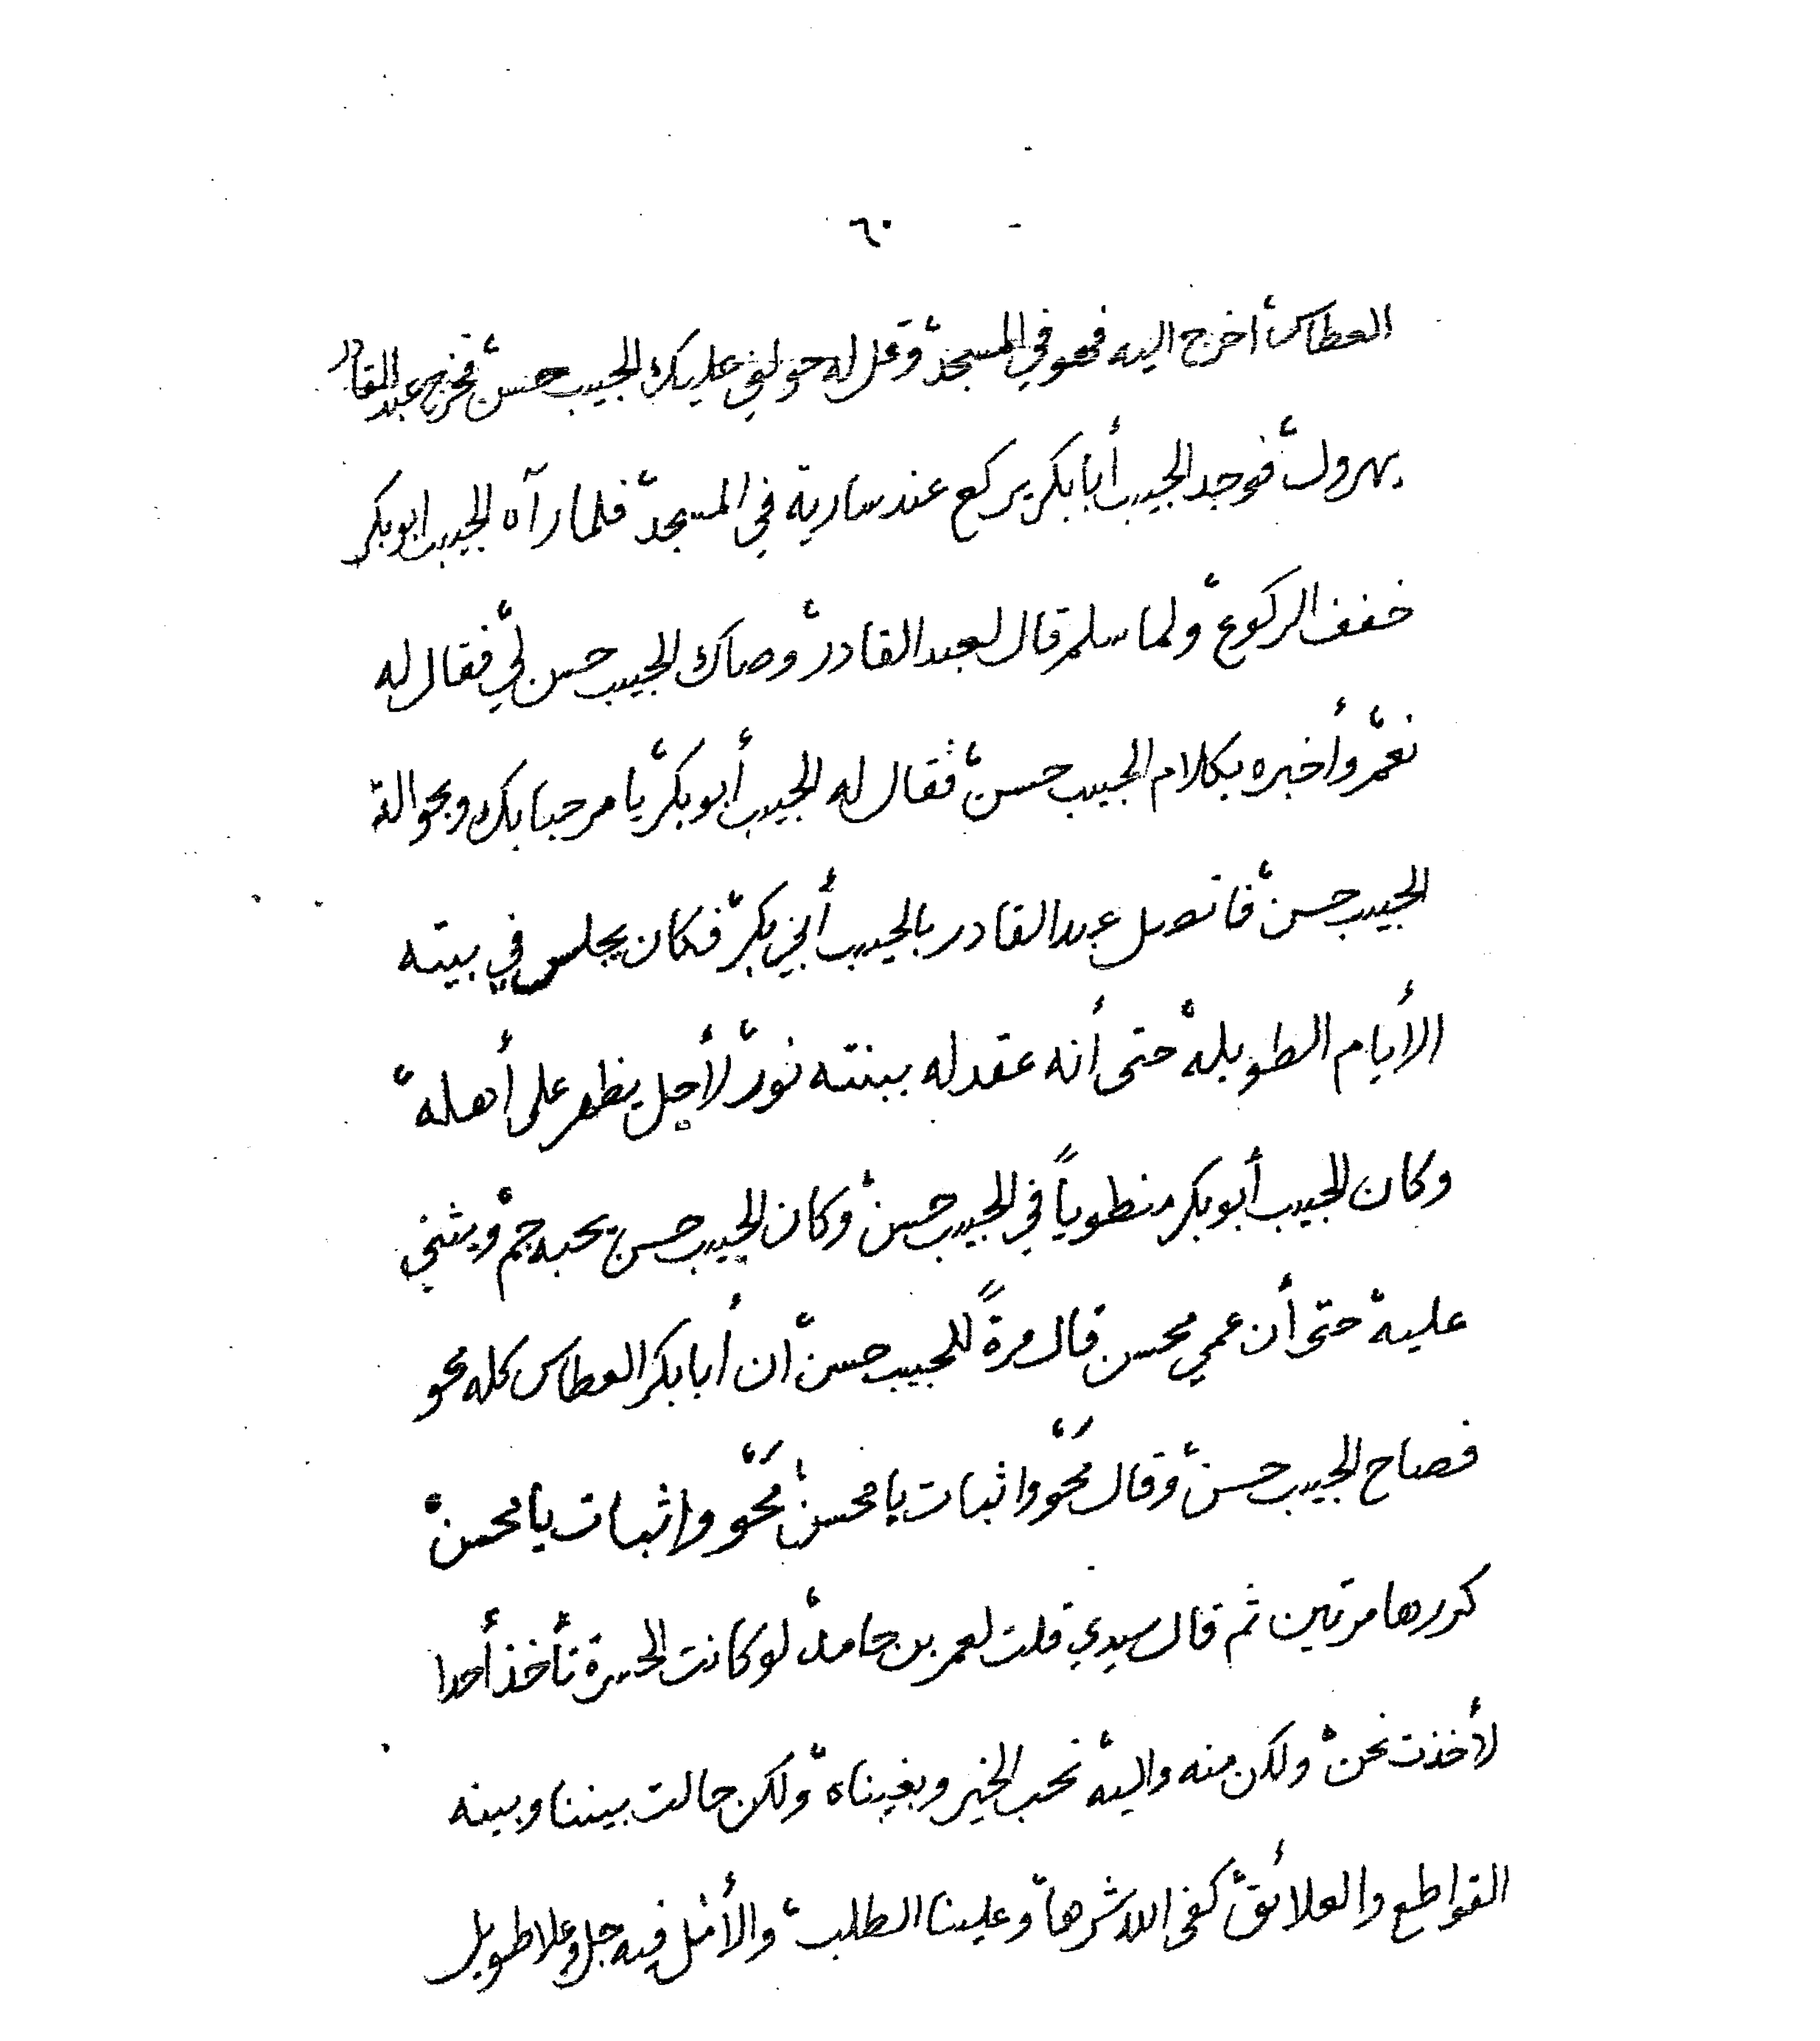 ٦٠
العطاس، اخرج اليه فهو في المسجد، وقل له حولني عليك الحبيب حسن، فخرج عبد القادر
يهرول، فوجد الحبيب أبا بكر يركع عند سارية في المسجد، فلما رآه الحبيب ابو بكر
خفف الركوع، ولما سلم قال لعبد القادر، وصاك الحبيب حسن لي، فقال له
نعم، وأخبره بكلام الحبيب حسن، فقال له الحبيب أبو بكر، يا مرحبا بك وبحوالة
الحبيب حسن، فاتصل عبد القادر بالحبيب أبي بكر، فكان يجلس في بيته
الأيام الطويلة، حتى أنه عقد له ببنته نور، لأجل يظهر على أهله،
وكان الحبيب أبو بكر منطوياً في الحبيب حسن، وكان الحبيب حسن يحبه جم، ويثني
عليه، حتى أن عمي محسن قال مرةً للحبيب حسن، ان أبا بكر العطاس كله محو
فصاح الحبيب حسن، وقال مَحْو واثبات يا محسن، مَحْو واثبات يا محسن،
كررها مرتين ثم قال سيدي قلت لعمر بن حامد، لو كانت الحسرة تأخذ أحدا
لأخذت نحن، ولكن منه واليه، نحب الخير وبغيناه، ولكن حالت بيننا وبينه
القواطع والعلائق، كفى الله شرها، وعلينا الطلب، والأمل فيه جل وعلا طويل